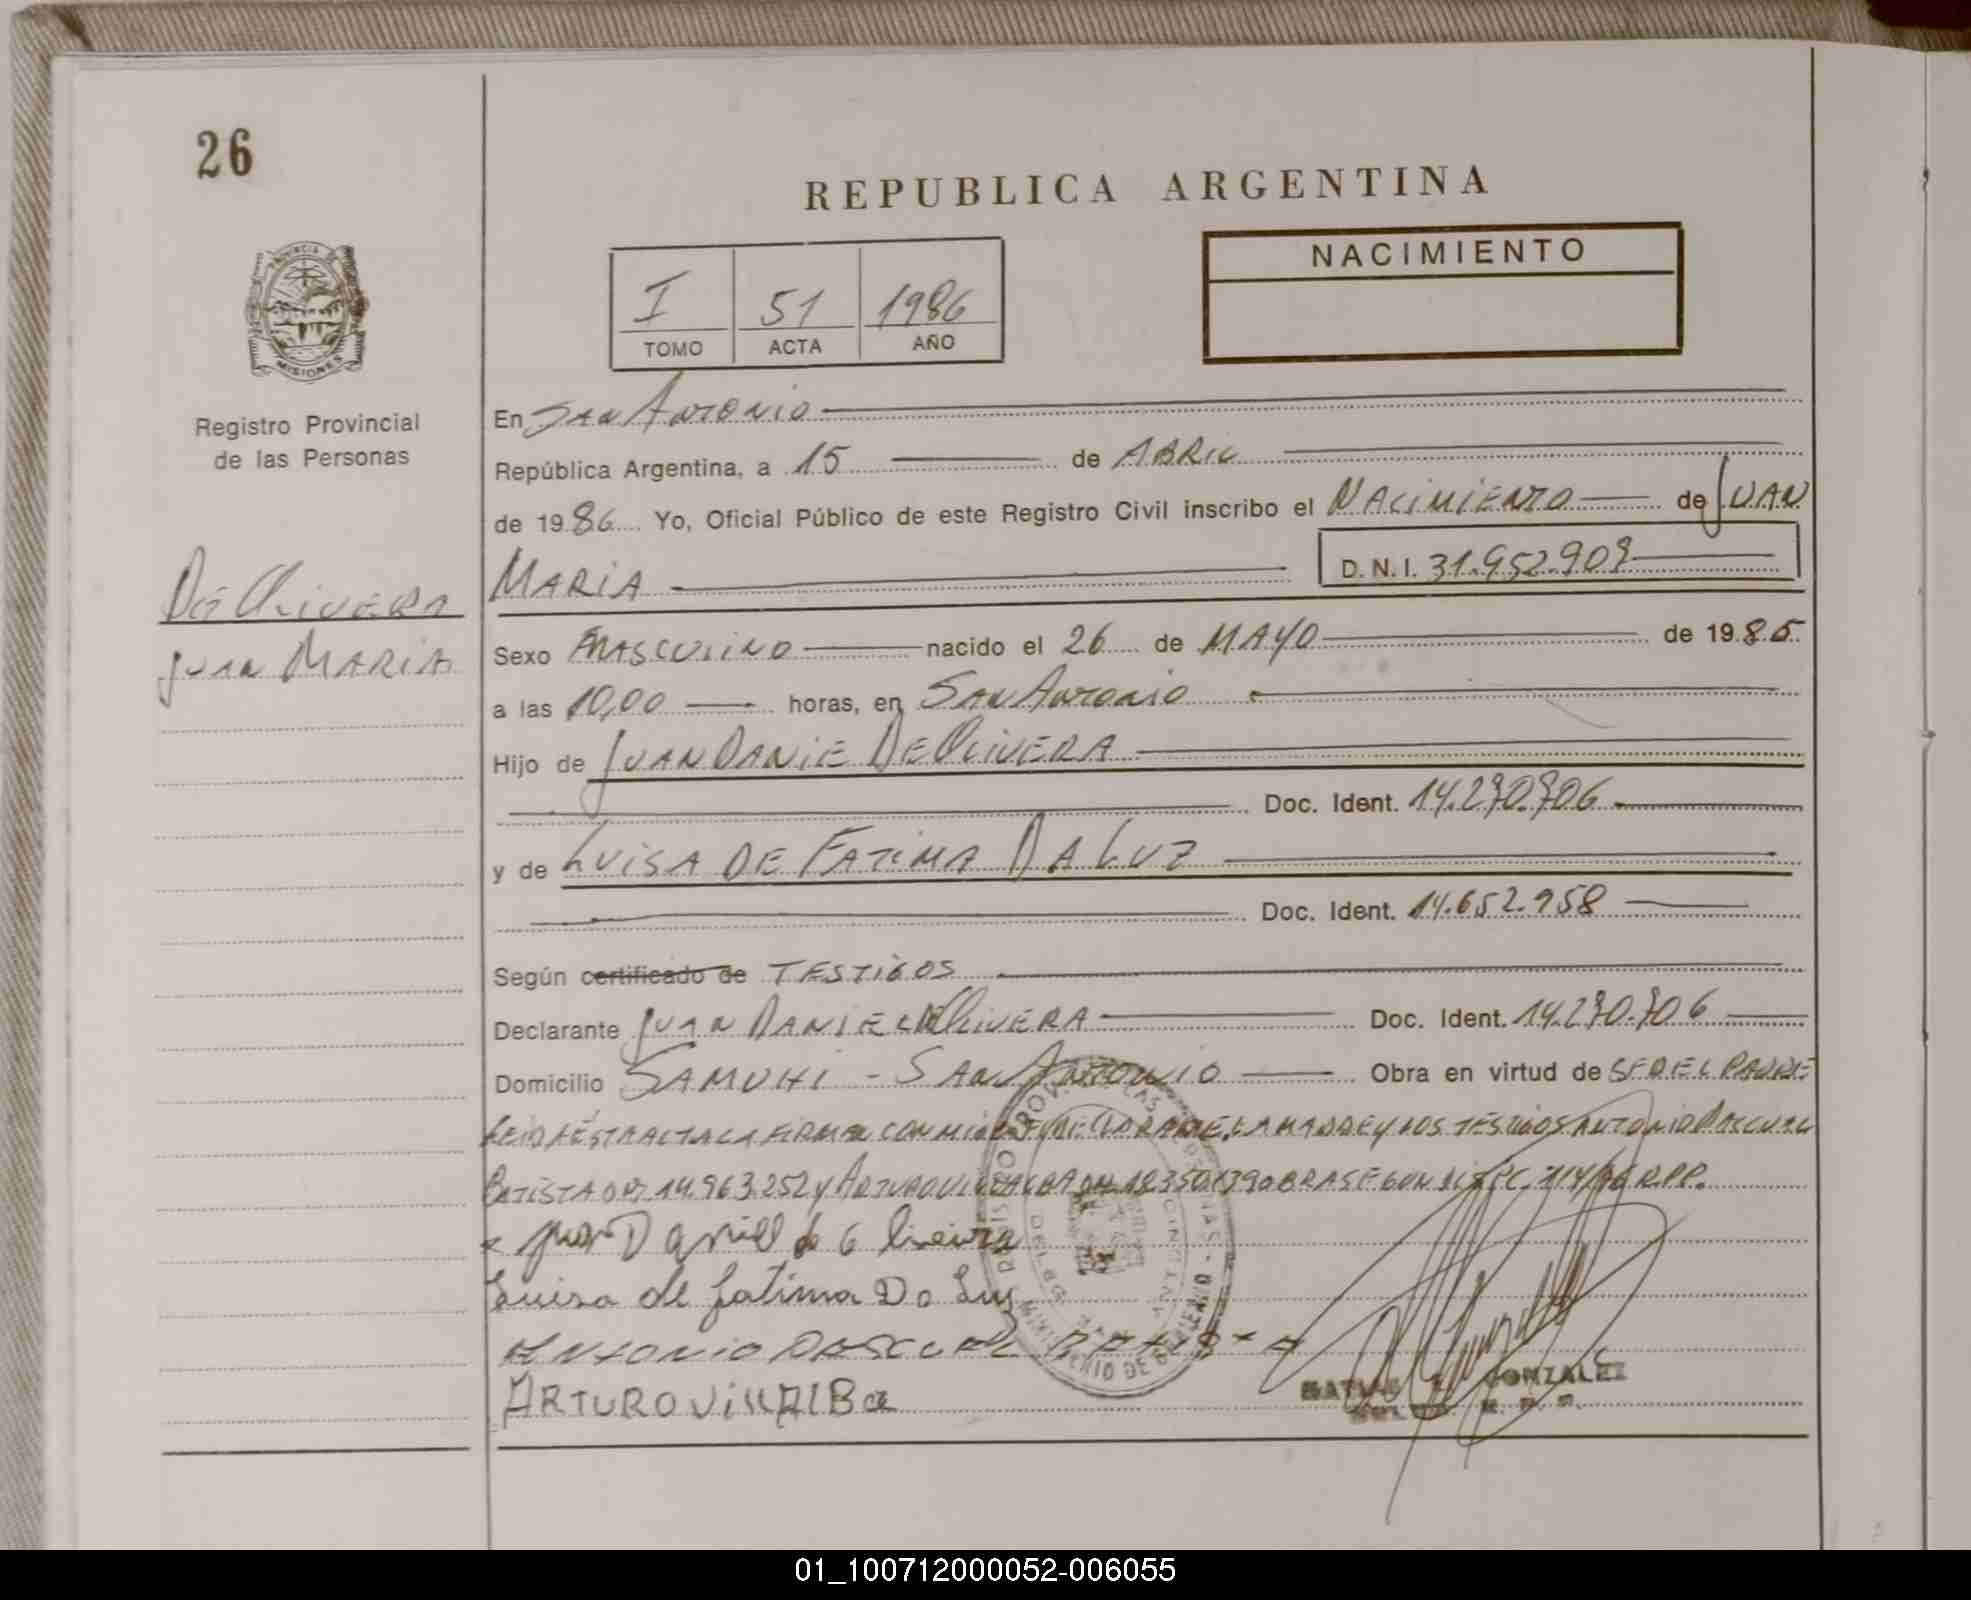 26
REPUBLICA ARGENTINA
NACIMIENTO
I 51 1986
TOMO ACTA AÑO
PROVINCIA DE
MISIONES
Registro Provincial
de las Personas
De Olivera
Juan Maria
En San Antonio
República Argentina, a 15 de Abril
de 1986 Yo, Oficial Público de este Registro Civil inscribo el Nacimiento de Juan
Maria D.N.I. 31.952.909
Sexo Masculino nacido el 26 de Mayo de 1985
a las 10,00 horas, en San Antonio
Hijo de Juan Danie De Olivera
Doc. Ident. 14.270.706
y de Luisa De Fatima Da Luz
Doc. Ident. 14.652.958
Según certificado de Testigos
Declarante Juan Daniel De Olivera Doc. Ident. 14.270.706
Domicilio Samuhi - San Antonio Obra en virtud de ser el Padre
Leida esta acta la firman conmigo el declarante, la madre y los testigos Antonio Pascual
Batista DNI 14.963.252 y Arturo Villalba obra segun R.P.P.
x Juan Daniel de Oliveira
Luisa de fatima Da Luz
Antonio Pascual Batista
Arturo Villalba
GONZALEZ
01_100712000052-006055